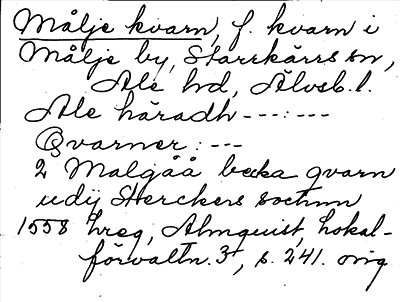 Målje kvarn, f. kvarn i
Målje by, Starrkärrs sn,
Ale hd, Älvsb. l.
Ale häradh ---:---
Qvarner: ---
2 Malgåå becka qvarn
udij Sterckers sochnn
1558 hreg, Almquist, Lokal-
förvaltn. 3, s. 241. orig